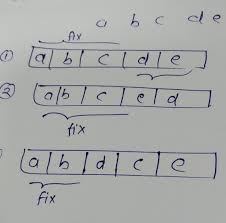 a b c d e
fix
① a b c d e
② a b c e d
fix
a b d c e
fix